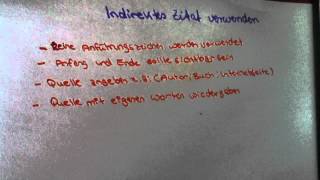 Indirektes Zitat verwenden
- Keine Anführungszeichen werden verwendet
- Anfang und Ende sollte sichtbar sein
- Quelle angeben z.B: (Autor; Buch; Internetseite)
- Quelle mit eigenen Worten wiedergeben